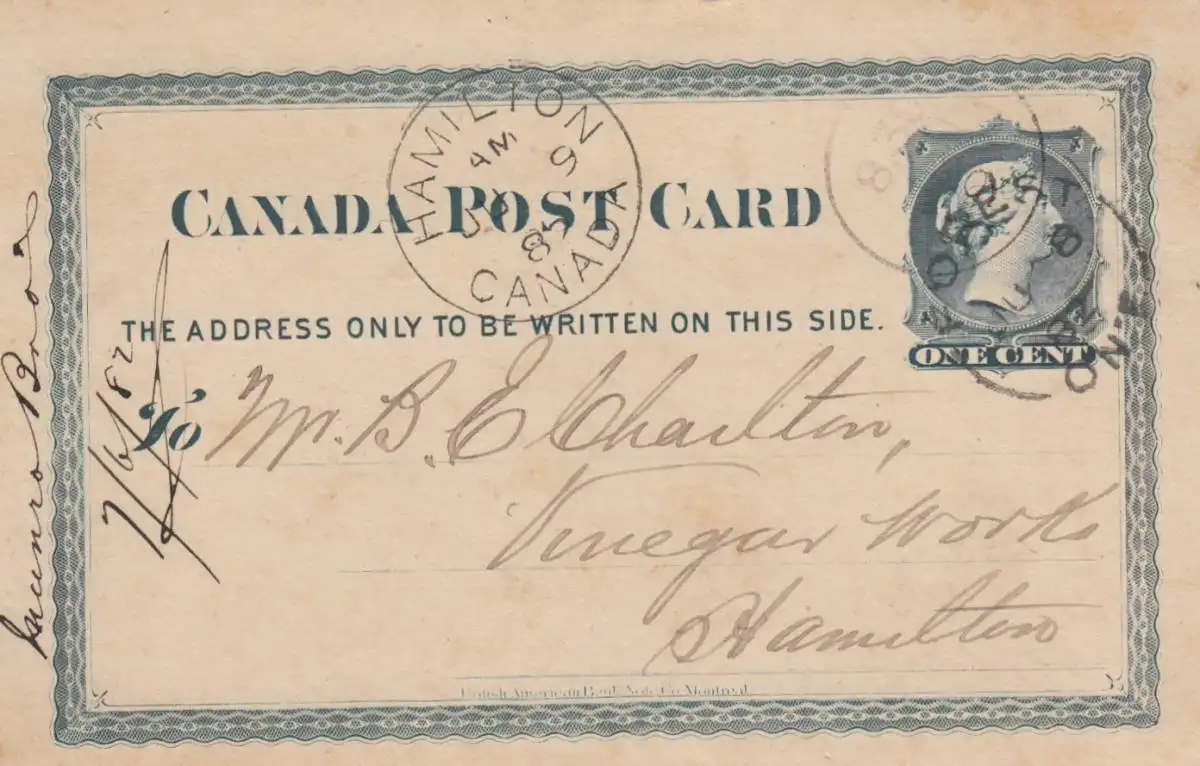 CANADA POST CARD
THE ADDRESS ONLY TO BE WRITTEN ON THIS SIDE.
To Mr. B. E. Charlton,
Vinegar Works
Hamilton
British American Bank Note Co. Montreal
ONE CENT
HAMILTON
AM
9
85
CANADA
Munro Bros
7/6/82
ONT